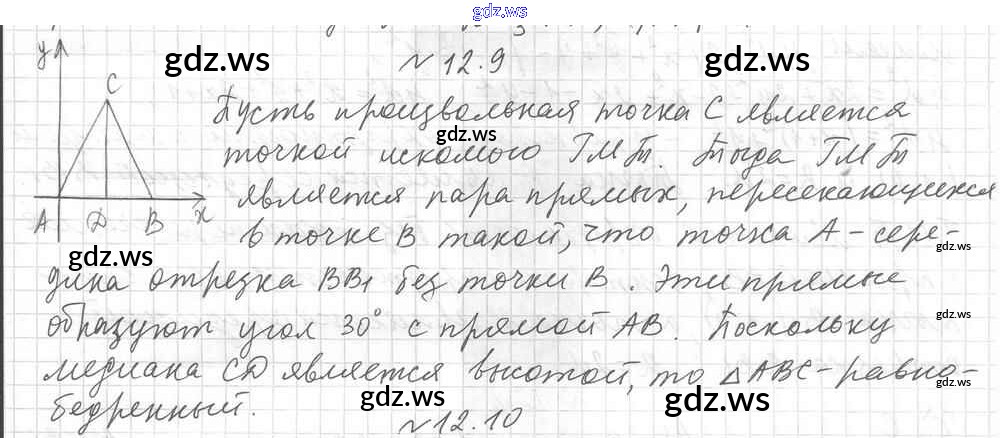 gdz.ws
№ 12.9
y
gdz.ws
gdz.ws
C
Пусть произвольная точка C является
gdz.ws
точкой искомого ГМТ. Тогда ГМТ
gdz.ws
является пара прямых, пересекающихся
A D B x
в точке B такой, что точка A – сере-
gdz.ws
gdz.ws
дина отрезка BB₁ без точки B. Эти прямые
образуют угол 30° с прямой AB. Поскольку
gdz.ws
медиана CD является высотой, то △ABC – равно-
gdz.ws
gdz.ws
gdz.ws
gdz.ws
бедренный.
№ 12.10